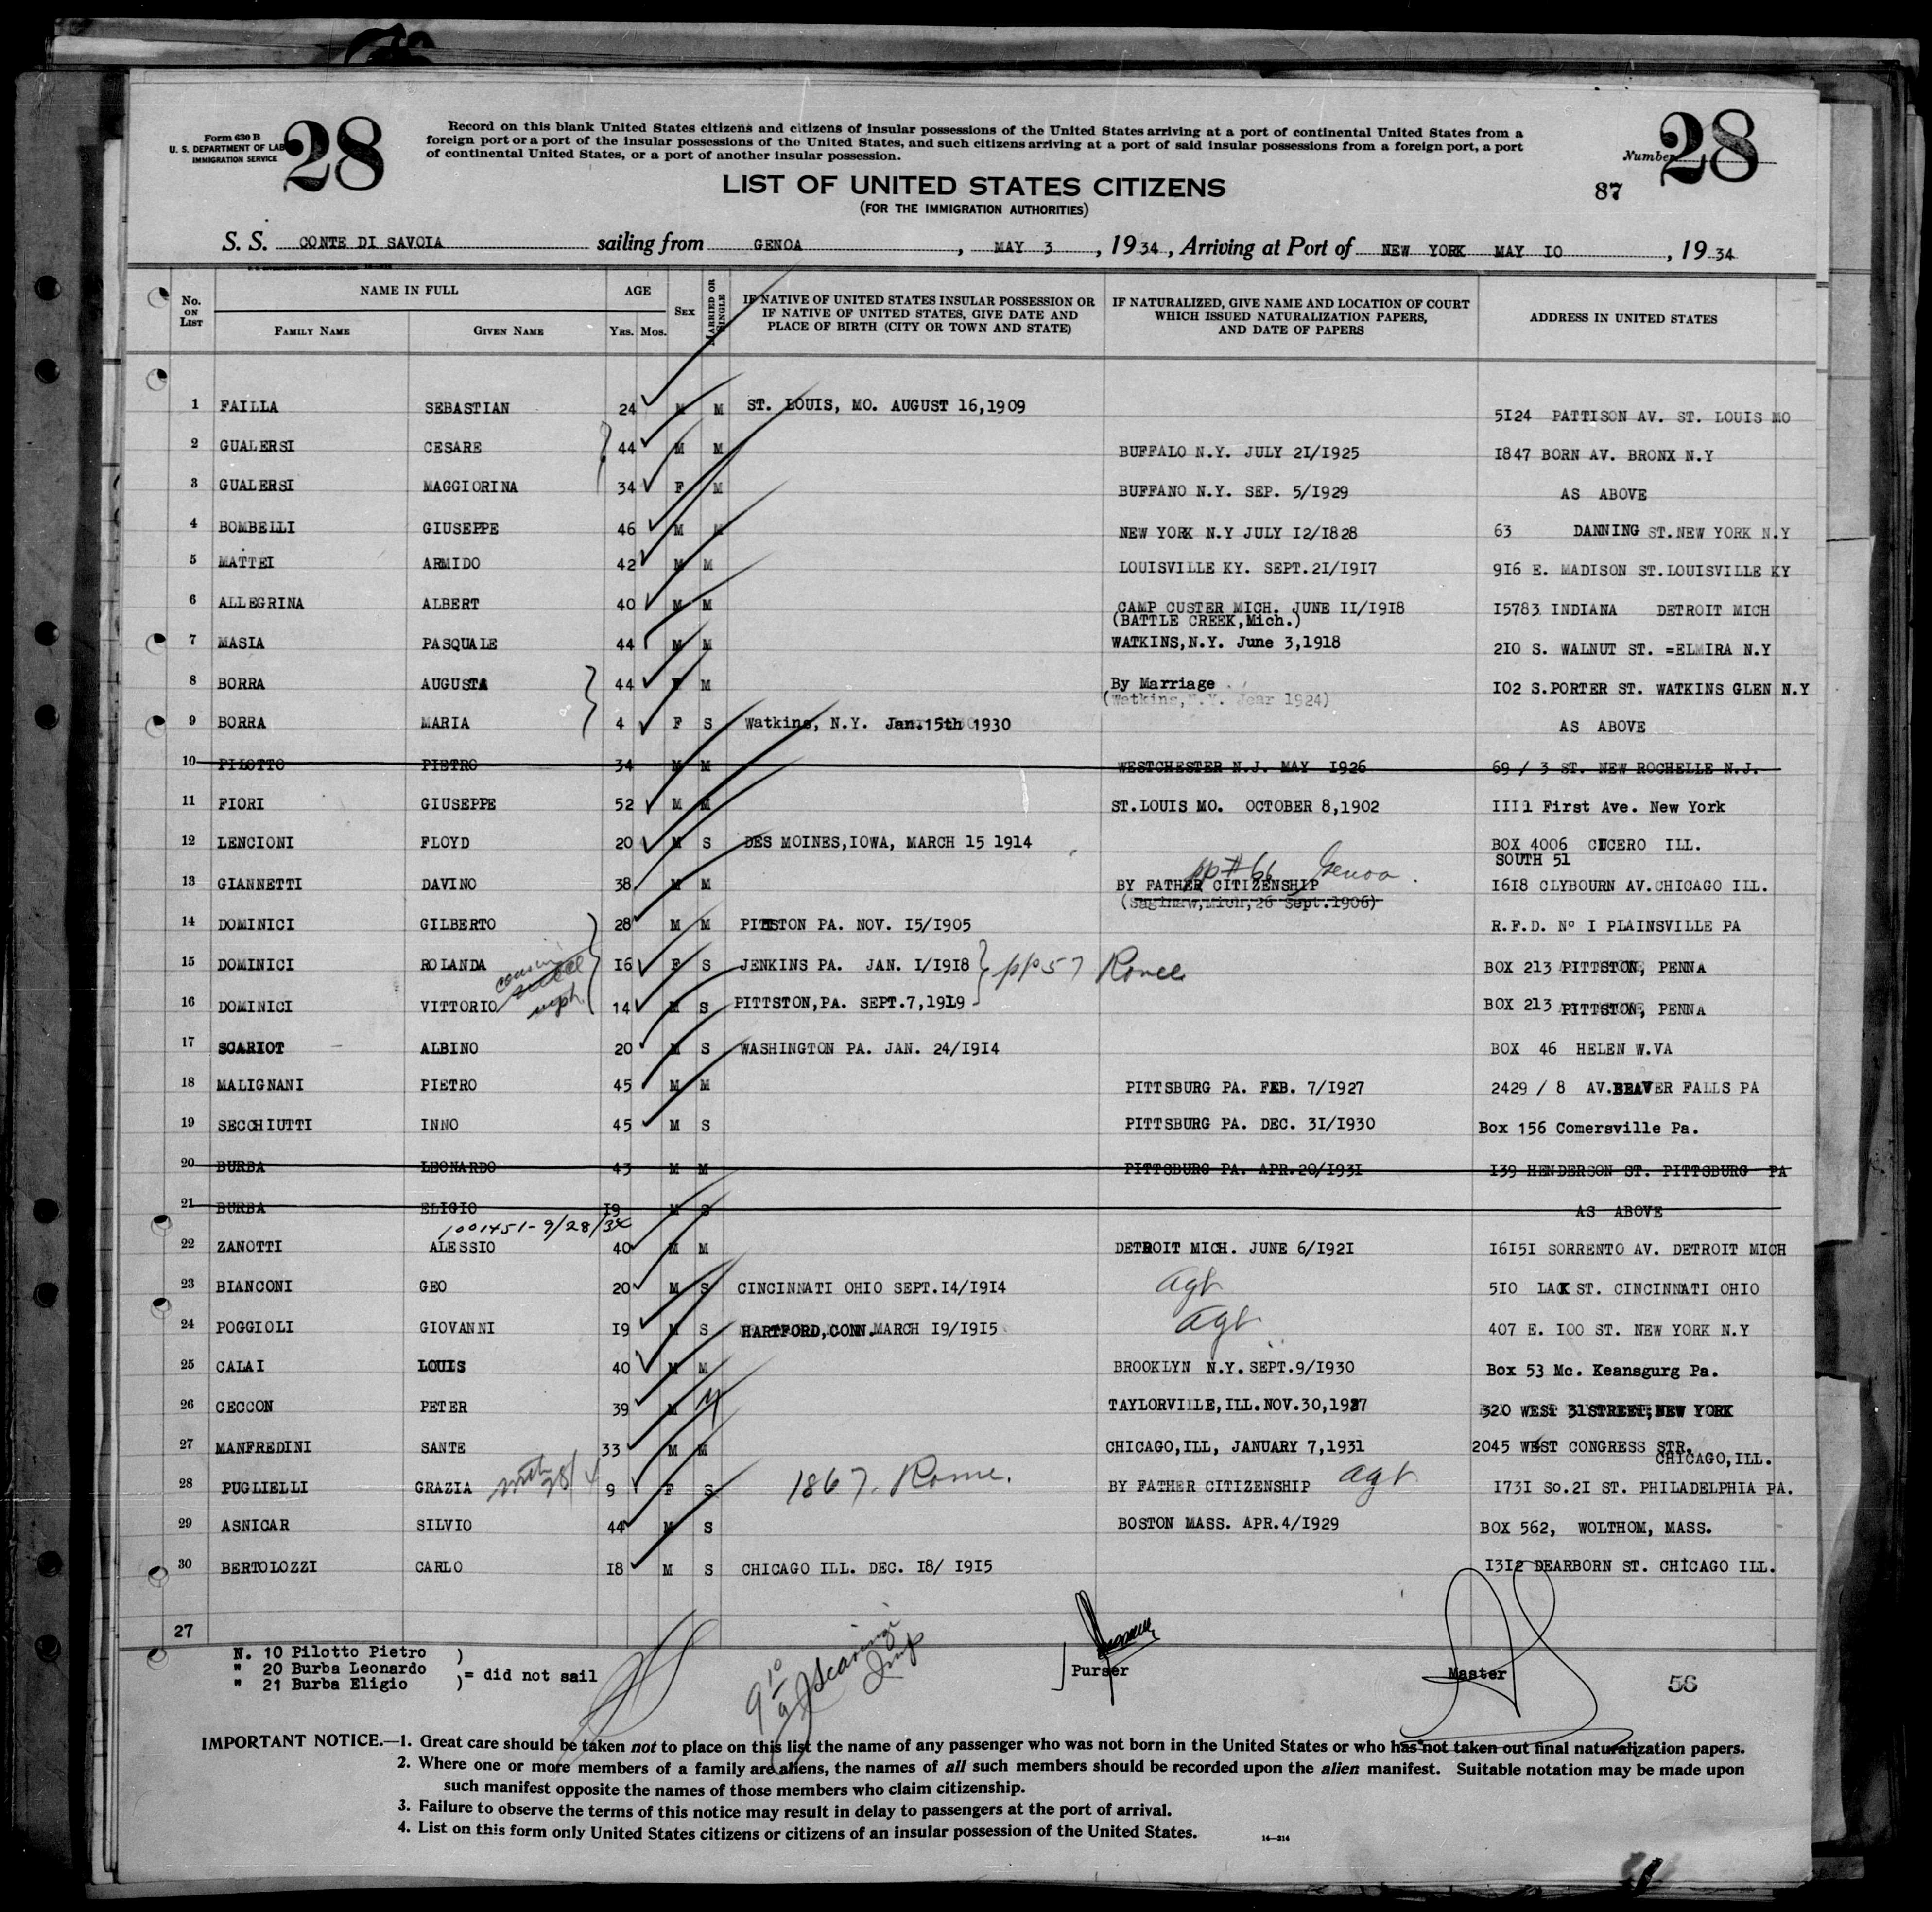 Form 630 B
U. S. DEPARTMENT OF LAB
IMMIGRATION SERVICE
28
Record on this blank United States citizens and citizens of insular possessions of the United States arriving at a port of continental United States from a
foreign port or a port of the insular possessions of the United States, and such citizens arriving at a port of said insular possessions from a foreign port, a port
of continental United States, or a port of another insular possession.
Number 28
87
LIST OF UNITED STATES CITIZENS
(FOR THE IMMIGRATION AUTHORITIES)
S. S. CONTE DI SAVOIA sailing from GENOA, MAY 3, 1934, Arriving at Port of NEW YORK MAY 10, 1934
No. ON LIST NAME IN FULL AGE SEX MARRIED OR SINGLE IF NATIVE OF UNITED STATES INSULAR POSSESSION OR IF NATIVE OF UNITED STATES, GIVE DATE AND PLACE OF BIRTH (CITY OR TOWN AND STATE) IF NATURALIZED, GIVE NAME AND LOCATION OF COURT WHICH ISSUED NATURALIZATION PAPERS, AND DATE OF PAPERS ADDRESS IN UNITED STATES
FAMILY NAME GIVEN NAME Yrs. Mos.
1 FAILLA SEBASTIAN 24 M M ST. LOUIS, MO. AUGUST 16,1909 5I24 PATTISON AV. ST. LOUIS MO
2 GUALERSI CESARE 44 M M BUFFALO N.Y. JULY 2I/I925 I847 BORN AV. BRONX N.Y
3 GUALERSI MAGGIORINA 34 F M BUFFANO N.Y. SEP. 5/I929 AS ABOVE
4 BOMBELLI GIUSEPPE 46 M M NEW YORK N.Y JULY I2/I828 63 DANNING ST.NEW YORK N.Y
5 MATTEI ARMIDO 42 M M LOUISVILLE KY. SEPT.2I/I9I7 9I6 E. MADISON ST.LOUISVILLE KY
6 ALLEGRINA ALBERT 40 M M CAMP CUSTER MICH. JUNE II/I9I8 I5783 INDIANA DETROIT MICH
(BATTLE CREEK,Mich.)
7 MASIA PASQUALE 44 M M WATKINS,N.Y. June 3,1918 2I0 S. WALNUT ST. =ELMIRA N.Y
8 BORRA AUGUSTA 44 F M By Marriage I02 S.PORTER ST. WATKINS GLEN N.Y
(Watkins,N.Y. Jear 1924)
9 BORRA MARIA 4 F S Watkins, N.Y. Jan.15th 1930 AS ABOVE
10 PILOTTO PIETRO 34 M M WESTCHESTER N.J. MAY I926 69 / 3 ST. NEW ROCHELLE N.J.
11 FIORI GIUSEPPE 52 M M ST.LOUIS MO. OCTOBER 8,1902 IIII First Ave. New York
12 LENCIONI FLOYD 20 M S DES MOINES,IOWA, MARCH 15 1914 BOX 4006 CICERO ILL.
SOUTH 51
pp#66 Genoa.
13 GIANNETTI DAVINO 38 M M BY FATHER CITIZENSHIP I6I8 CLYBOURN AV.CHICAGO ILL.
(Saginaw,Mich,26 Sept.1906)
14 DOMINICI GILBERTO 28 M M PITTSTON PA. NOV. I5/I905 R.F.D. Nº I PLAINSVILLE PA
15 DOMINICI ROLANDA I6 F S JENKINS PA. JAN. I/I9I8 pp57 Rome BOX 213 PITTSTON, PENNA
cousin
neph.
16 DOMINICI VITTORIO 14 M S PITTSTON,PA. SEPT.7,1919 BOX 213 PITTSTON, PENNA
17 SCARIOT ALBINO 20 M S WASHINGTON PA. JAN. 24/I9I4 BOX 46 HELEN W.VA
18 MALIGNANI PIETRO 45 M M PITTSBURG PA. FEB. 7/I927 2429 / 8 AV.BEAVER FALLS PA
19 SECCHIUTTI INNO 45 M S PITTSBURG PA. DEC. 3I/I930 Box 156 Comersville Pa.
20 BURBA LEONARDO 43 M M PITTSBURG PA. APR.20/I93I I39 HENDERSON ST. PITTSBURG PA
21 BURBA ELIGIO I9 M S AS ABOVE
1001451-9/28/34
22 ZANOTTI ALESSIO 40 M M DETROIT MICH. JUNE 6/I92I I6I5I SORRENTO AV. DETROIT MICH
23 BIANCONI GEO 20 M S CINCINNATI OHIO SEPT.I4/I9I4 agt 5I0 LAK ST. CINCINNATI OHIO
24 POGGIOLI GIOVANNI I9 M S HARTFORD,CONN.MARCH I9/I9I5 agt 407 E. I00 ST. NEW YORK N.Y
25 CALAI LOUIS 40 M M BROOKLYN N.Y.SEPT.9/I930 Box 53 Mc. Keansgurg Pa.
26 CECCON PETER 39 M M TAYLORVILLE,ILL.NOV.30,1927 320 WEST 31STREET,NEW YORK
27 MANFREDINI SANTE 33 M M CHICAGO,ILL, JANUARY 7,1931 2045 WEST CONGRESS STR.
CHICAGO,ILL.
28 PUGLIELLI GRAZIA 9 F S 1867. Rome. BY FATHER CITIZENSHIP agt I73I So.2I ST. PHILADELPHIA PA.
29 ASNICAR SILVIO 44 M S BOSTON MASS. APR.4/I929 BOX 562, WOLTHOM, MASS.
30 BERTOLOZZI CARLO I8 M S CHICAGO ILL. DEC. I8/ I9I5 I3I2 DEARBORN ST. CHICAGO ILL.
27
N. 10 Pilotto Pietro )
" 20 Burba Leonardo )= did not sail
" 21 Burba Eligio )
Purser
Master
56
IMPORTANT NOTICE.—1. Great care should be taken not to place on this list the name of any passenger who was not born in the United States or who has not taken out final naturalization papers.
2. Where one or more members of a family are aliens, the names of all such members should be recorded upon the alien manifest. Suitable notation may be made upon
such manifest opposite the names of those members who claim citizenship.
3. Failure to observe the terms of this notice may result in delay to passengers at the port of arrival.
4. List on this form only United States citizens or citizens of an insular possession of the United States.
14—314